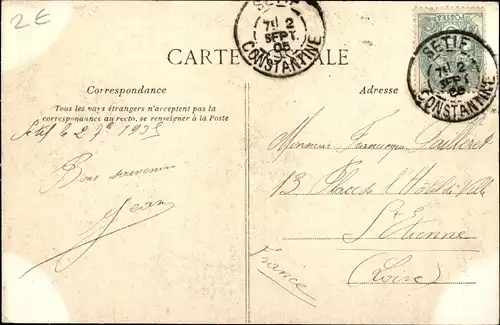 2€
SETIF
7H 2
SEPT.
05
CONSTANTINE
SETIF
7H 2
SEPT
05
CONSTANTINE
POSTES
CARTE ALE
Correspondance
Adresse
Tous les pays étrangers n'acceptent pas la
correspondance au recto, se renseigner à la Poste
Sétif le 2 7bre 1905
Bons souvenirs
Jean
Monsieur
13 Place de l'Hôtel de Ville
St Etienne
(Loire)
France